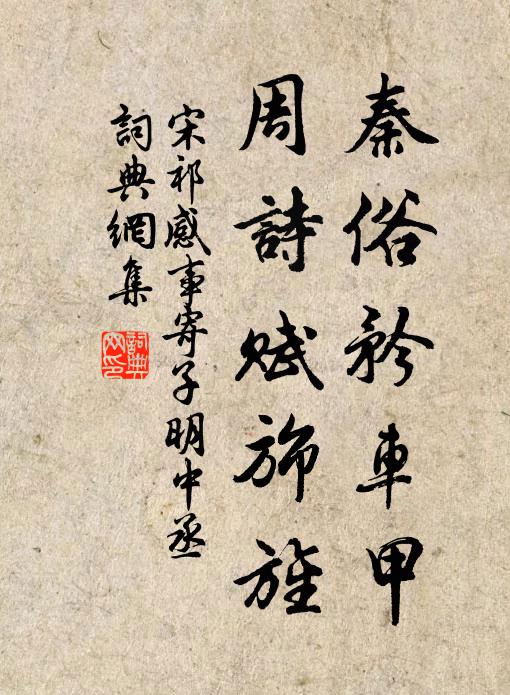 秦俗矜車甲
周詩賦旆旌
宋祁感事寄子明中丞
詞典網集
詞典網印